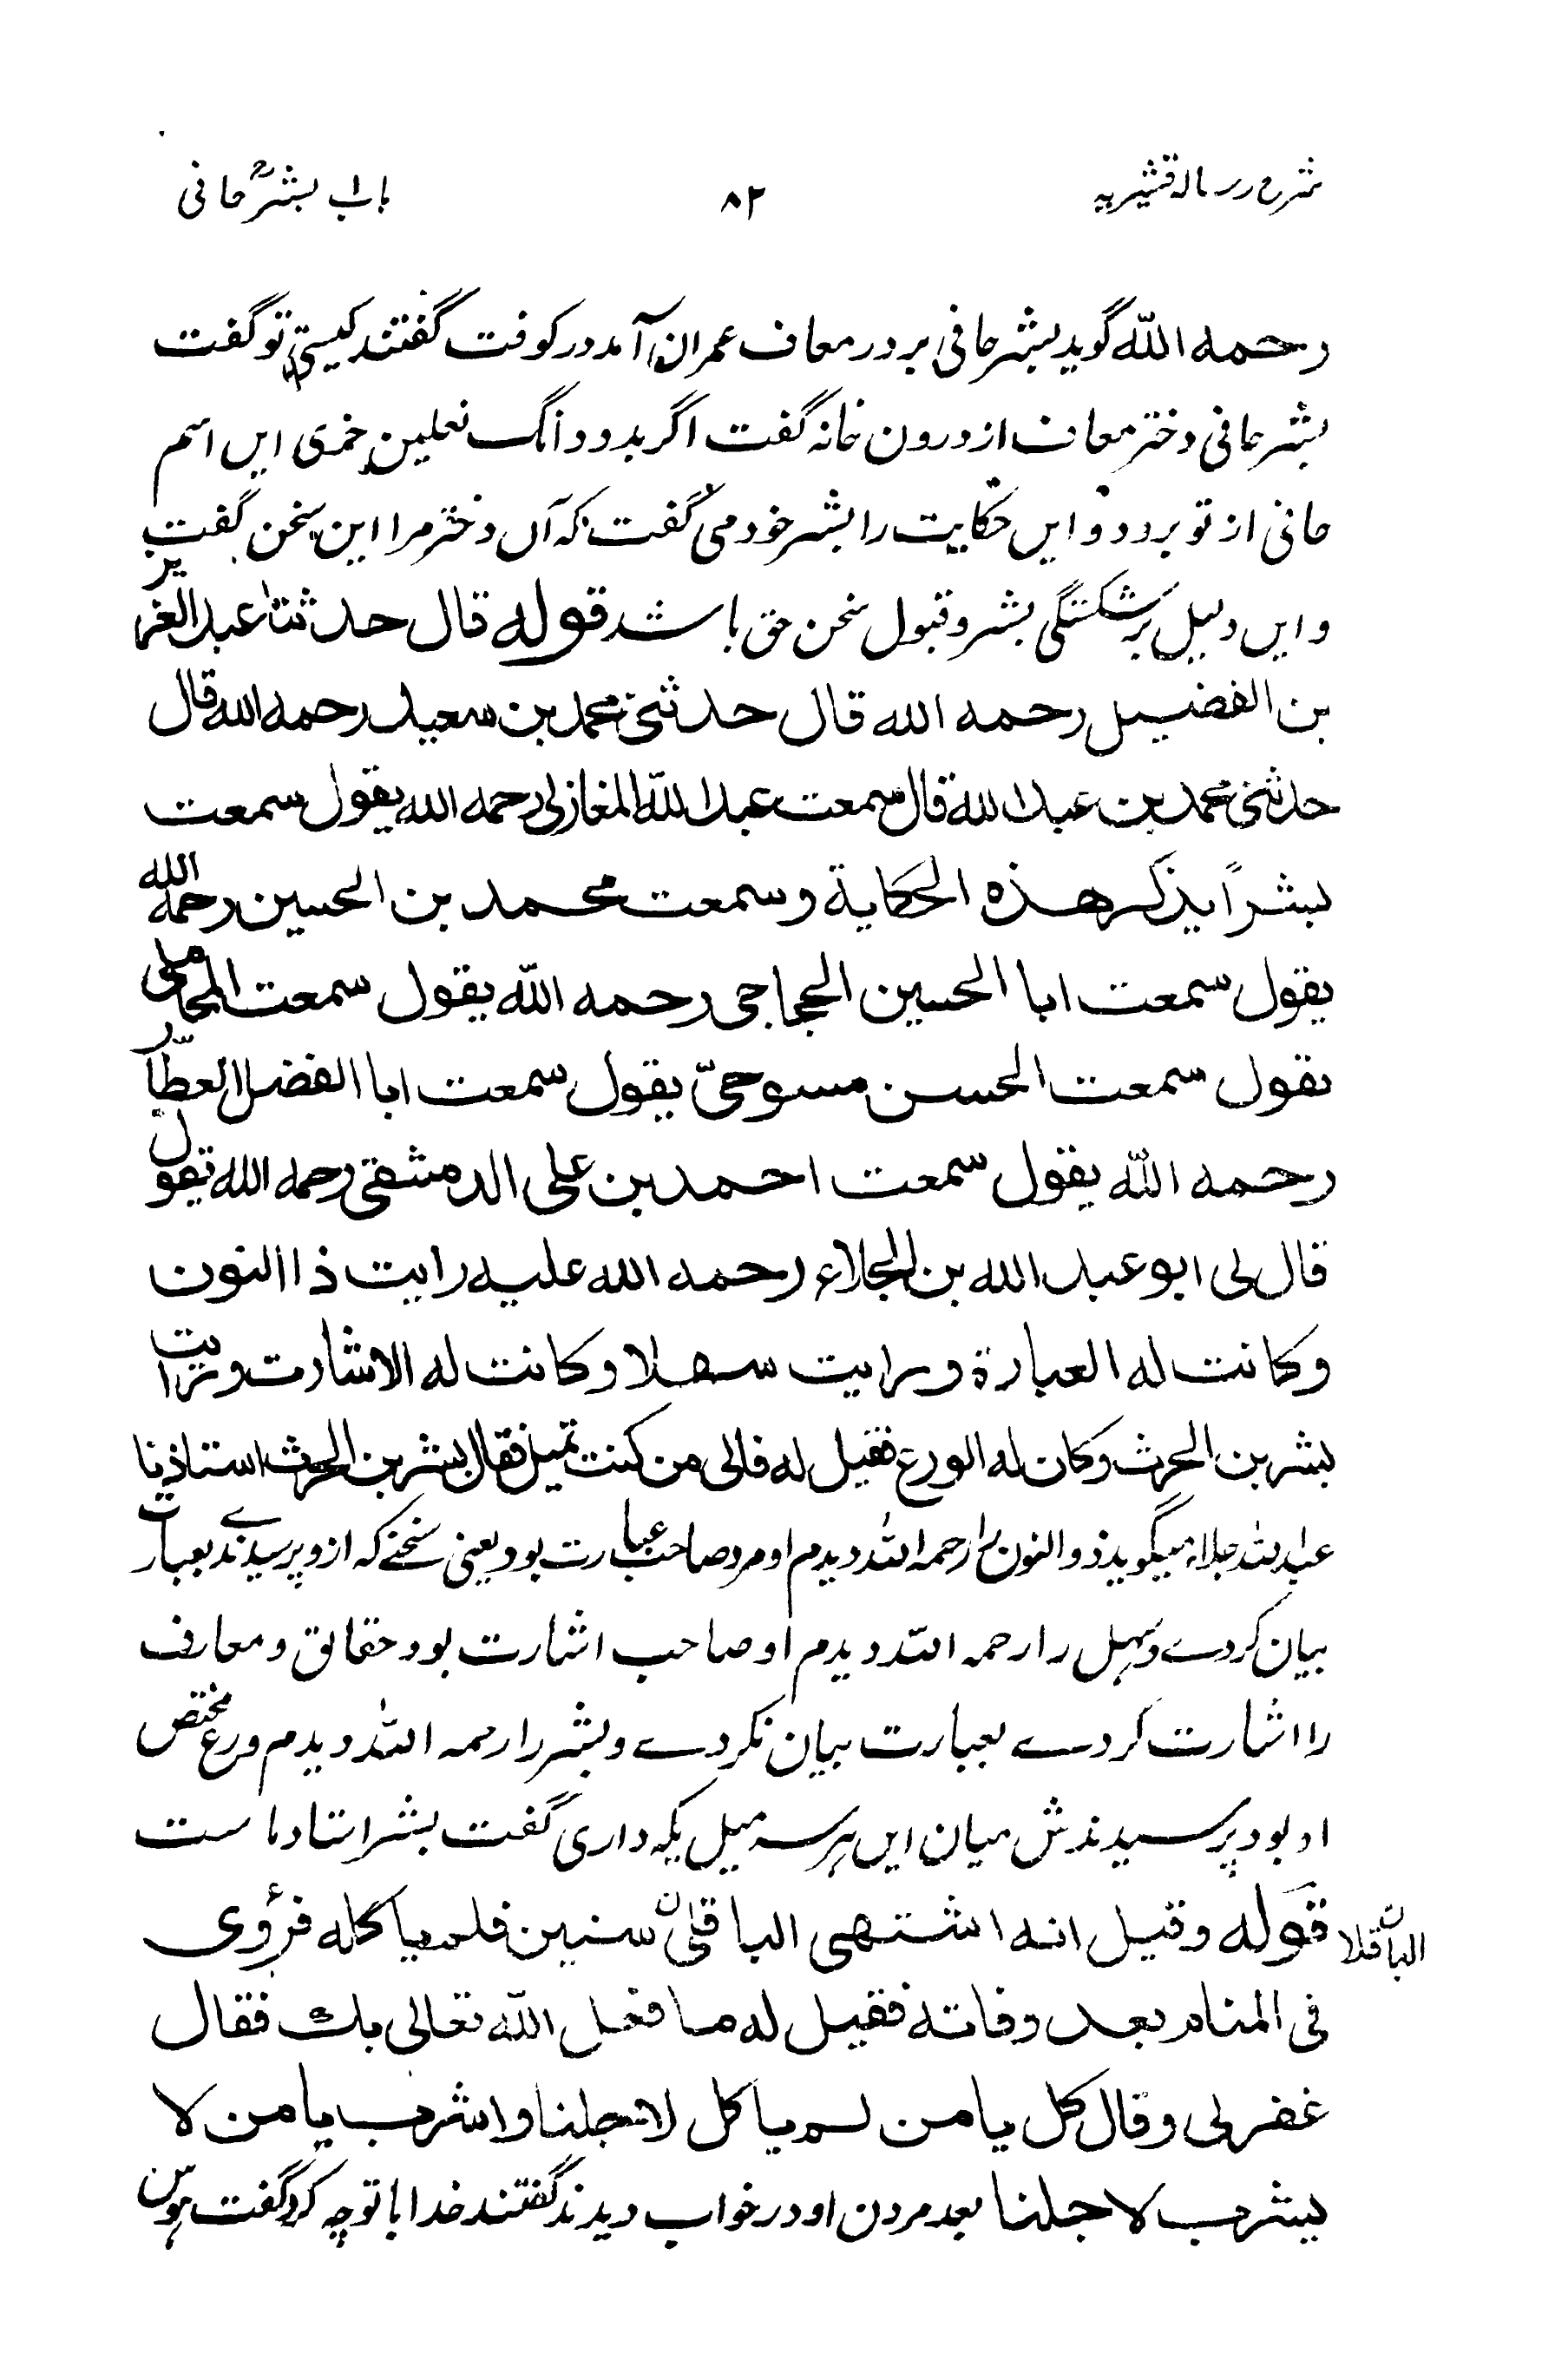 شرح رسالہ قشیریہ ۸۲ باب بشرؒ حافی
رحمه اللّٰه گوید بشر حافی بر در معاف عمران آمد در کوفت گفتند کیستی تو گفت
بشر حافی دختر معاف از درون خانه گفت اگر بدو دانگ نعلین خمری ایں اسم
حافی از تو برود و ایں حکایت را بشر خود می گفت که آں دختر مرا این سخن گفت
و ایں دلیل بر شکستگی بشر و قبول سخن حق باشد قوله قال حدثنا عبد العزیز
بن الفضیل رحمه الله قال حدثنی محمد بن سعید رحمه الله قال
حدثنی محمد بن عبد الله قال سمعت عبد اللّٰه المغازلی رحمه الله یقول سمعت
بشراً یذکر هذه الحکایة و سمعت محمد بن الحسین رحمه الله
یقول سمعت ابا الحسین الحجاجی رحمه اللّٰه یقول سمعت المحاملی
یقول سمعت الحسن مسوحیّ یقول سمعت ابا الفضل العطّار
رحمه اللّٰه یقول سمعت احمد بن علی الدمشقی رحمه الله یقول
قال لی ابو عبد الله بن الجلاء رحمه الله علیه رایت ذا النون
وکانت له العبارة و رایت سهلا وکانت له الاشارت و رایت
بشر بن الحرث وکان له الورع فقیل له فالی من کنت تمیل فقال بشر بن الحرث استاذنا
عبد اللہ جلاء میگوید ذوالنون را رحمه اللہ دیدم او مرد صاحب عبارت بود یعنی سخنے که ازو پرسیدندے بعبارت
بیان کردے و سہل را رحمه اللہ دیدم او صاحب اشارت بود حقائق و معارف
را اشارت کردے بعبارت بیان نکردے و بشر را رحمه اللہ دیدم ورع مختص
او بود پرسیدندش میان ایں ہر سه میل بکه داری گفت بشر استاد ماست
قوله وقیل انه اشتهی الباقلیٰ سنین فلم یاکله فرؤی
الباقلا
فی المنام بعد وفاته فقیل له ما فعل اللّٰه تعالی بک فقال
غفر لی وقال کل یا من لم یاکل لاجلنا واشرب یا من لا
یشرب لاجلنا بعد مردن او در خواب دیدند گفتند خدا با تو چه کرد گفت